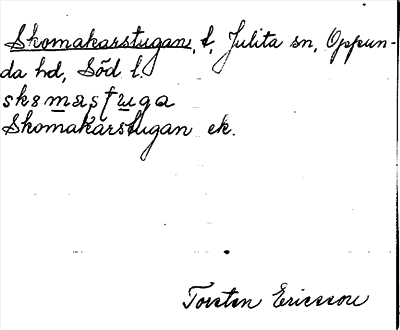 Skomakarstugan, t, Julita sn, Oppun-
da hd, Söd l.
Skomakarstugan ek.
Torsten Ericsson